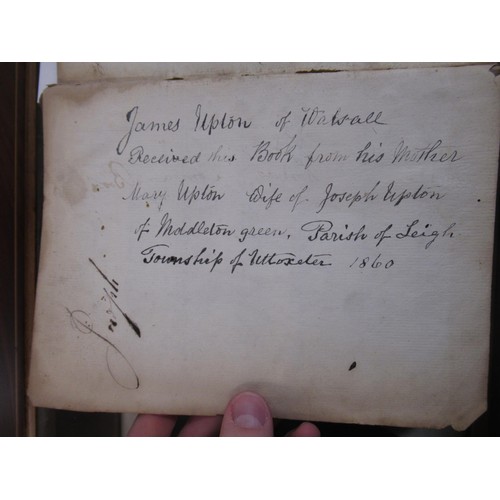 James Upton of Walsall
Received this Book from his Mother
Mary Upton Wife of Joseph Upton
of Middleton green, Parish of Leigh
Township of Uttoxeter 1860
Joseph